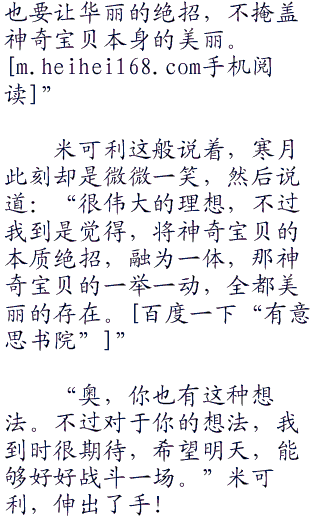 也要让华丽的绝招，不掩盖
神奇宝贝本身的美丽。
[m.heihei168.com手机阅
读]”
米可利这般说着，寒月
此刻却是微微一笑，然后说
道：“很伟大的理想，不过
我到是觉得，将神奇宝贝的
本质绝招，融为一体，那神
奇宝贝的一举一动，全都美
丽的存在。[百度一下“有意
思书院”]”
“奥，你也有这种想
法。不过对于你的想法，我
到时很期待，希望明天，能
够好好战斗一场。”米可
利，伸出了手！